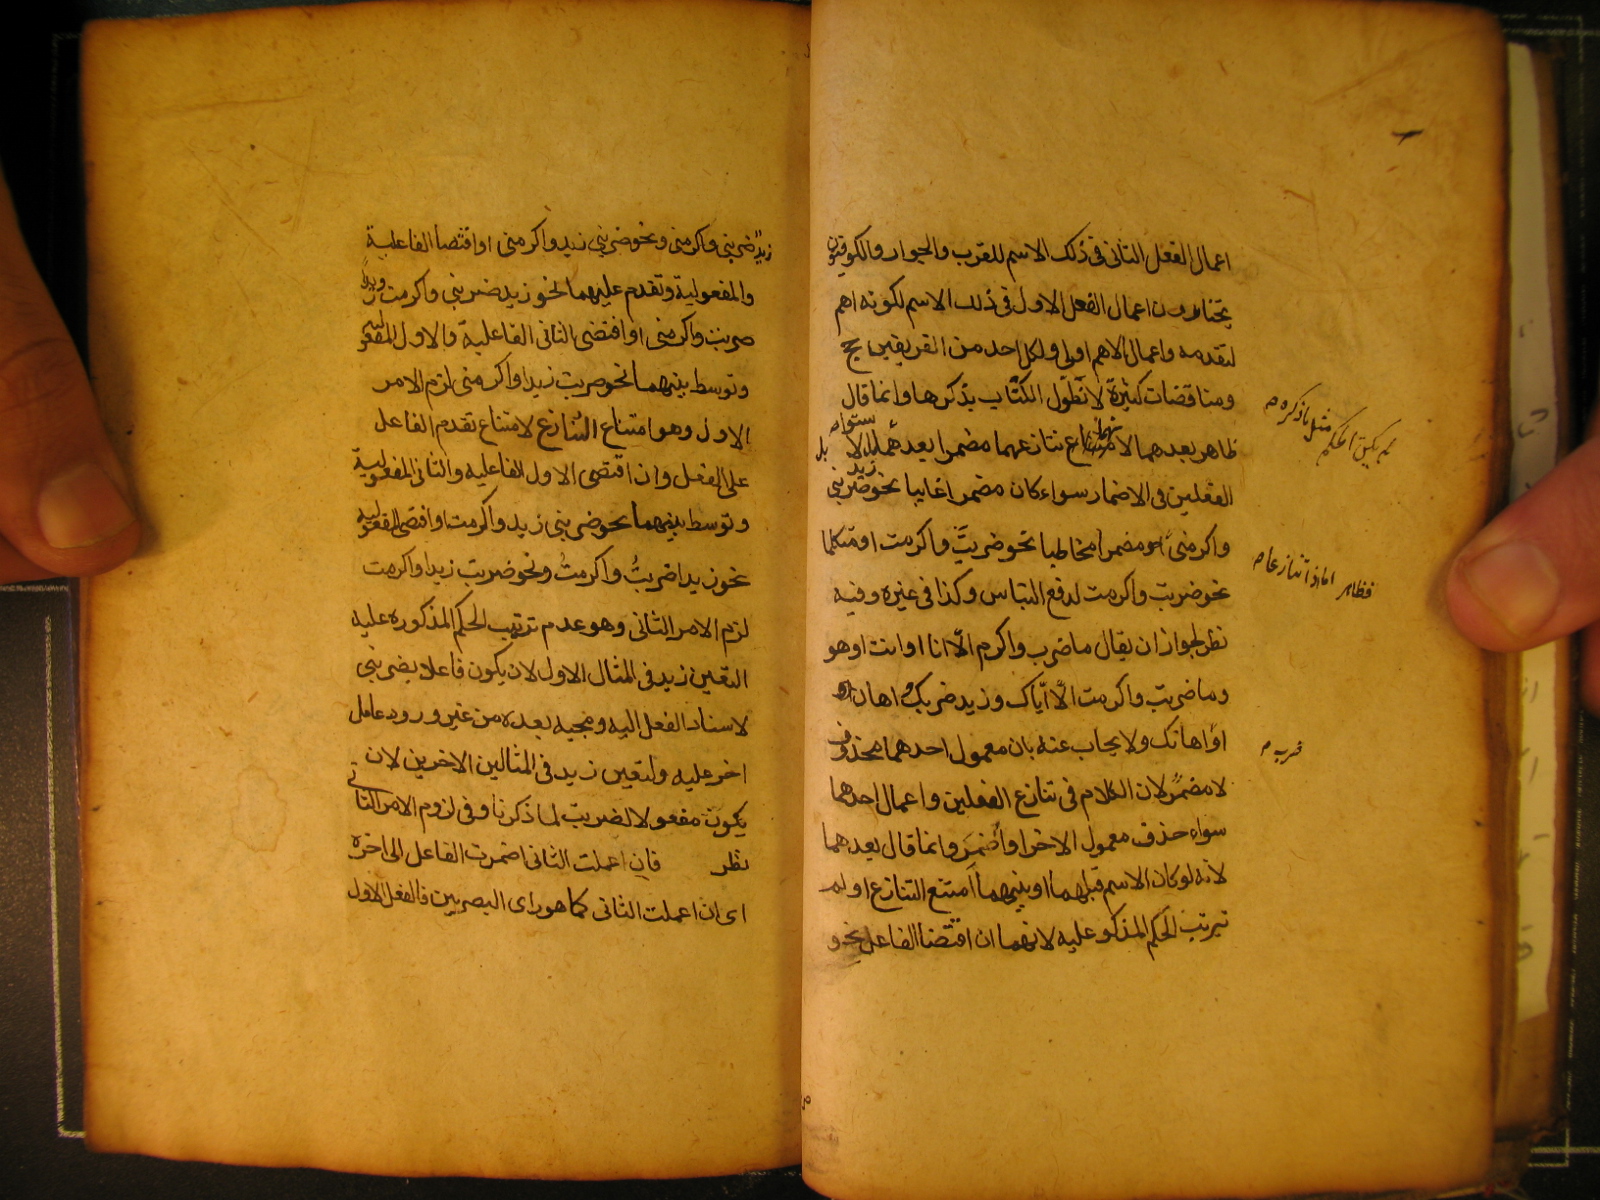 اعمال الفعل الثانى فى ذلك الاسم للقرب والجوار والكوفيون
يختارون اعمال الفعل الاول فى ذلك الاسم لكونه اهم
لتقدمه واعمال الاهم اولى ولكل احد من الفريقين حجج
ومناقضات كثيرة لا نطول الكتاب بذكرها وانما قال
ظاهر بعدهما لامتناع تنازعهما مضمرا بعدهما
الفعلين فى الاضمار سواء كان مضمرا غايبا نحو زيد ضربنى
واكرمنى او مضمرا مخاطبا نحو ضربتَ واكرمت او متكلما
نحو ضربت واكرمت لدفع التباس وكذا فى غيره وفيه
نظر لجواز ان يقال ما ضرب واكرم الّا انا او انت او هو
وما ضربت واكرمت الّا ايّاك وزيد ضربك او اهان
او اهانك ولا يجاب عنه بان معمول احدهما محذوف
لا مضمرٌ لان الكلام فى تنازع الفعلين واعمال احدهما
سواء حذف معمول الاخر او أُضمِرَ وانما قال بعدهما
لانه لو كان الاسم قبلهما او بينهما امتنع التنازع او لم
يترتب الحكم المذكور عليه لانهما ان اقتضا الفاعل نحو
لم يكن الحكم مثل ما ذكره م
فظاهر اما اذا تنازعا م
ضربه م
زيدٌ ضربنى واكرمنى ونحو ضربنى زيد واكرمنى او اقتضا الفاعلية
والمفعولية وتقدم عليهما نحو زيد ضربنى واكرمت وزيدا
ضربت واكرمنى او اقتضى الثانى الفاعلية والاول المفعولية
وتوسط بينهما نحو ضربت زيدا واكرمنى لزم الامر
الاول وهو امتناع التنازع لامتناع تقدم الفاعل
على الفعل وان اقتضى الاول الفاعليه والثانى المفعولية
وتوسط بينهما نحو ضربنى زيد واكرمت او اقتضى المفعولية
نحو زيدا ضربتُ واكرمتُ ونحو ضربت زيدا واكرمت
لزم الامر الثانى وهو عدم ترتيب الحكم المذكوره عليه
التعين زيد فى المثال الاول لان يكون فاعلا بضربنى
لاسناد الفعل اليه ومجيه بعده من غير ورود عامل
اخر عليه ولتعين زيد فى المثالين الاخرين لان
يكون مفعولا لضربت لما ذكرنا وفى لزوم الامر الثانى
نظر فان اعملت الثانى اضمرت الفاعل الى اخره
اى ان اعملت الثانى كما هو راى البصريين فالفعل الاول